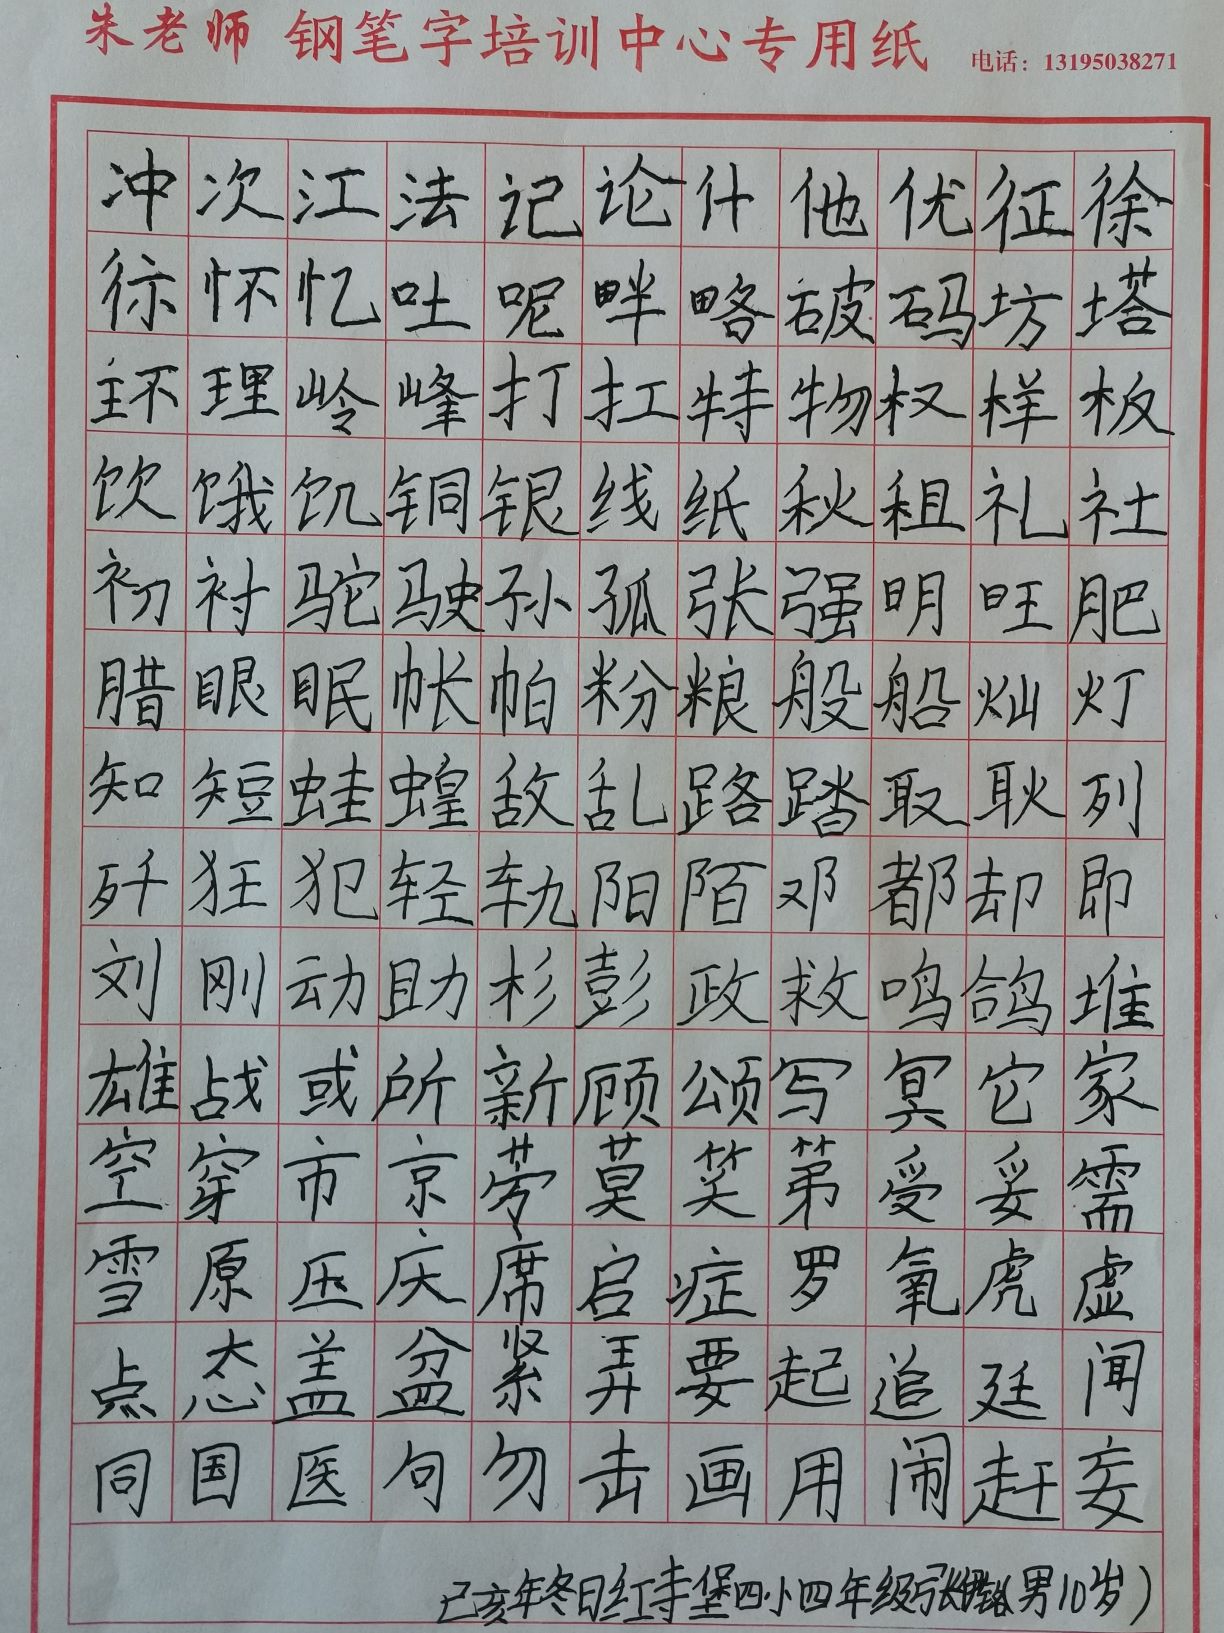 朱老师 钢笔字培训中心专用纸 电话：13195038271
冲次江法记论什他优征徐
怀忆吐呢畔略破码坊塔
环理岭峰打扛特物权样板
饮饿饥铜银线纸秋租礼社
初衬驼驶孙孤张强明旺肥
腊眼眠帐帕粉粮般船灿灯
知短蛙蝗敌乱路踏取耿列
歼狂犯轻轨阳陌邓都却即
刘刚动助杉彭政救鸣鸽堆
雄战或所新顾颂写冥它家
空穿市京劳莫笑第受妥需
雪原压庆席启症罗氧虎虚
点态盖盆紧弄要起追廷闻
同国医句勿击画用闹赶妄
己亥年冬日红寺堡四小四年级张 男10岁）